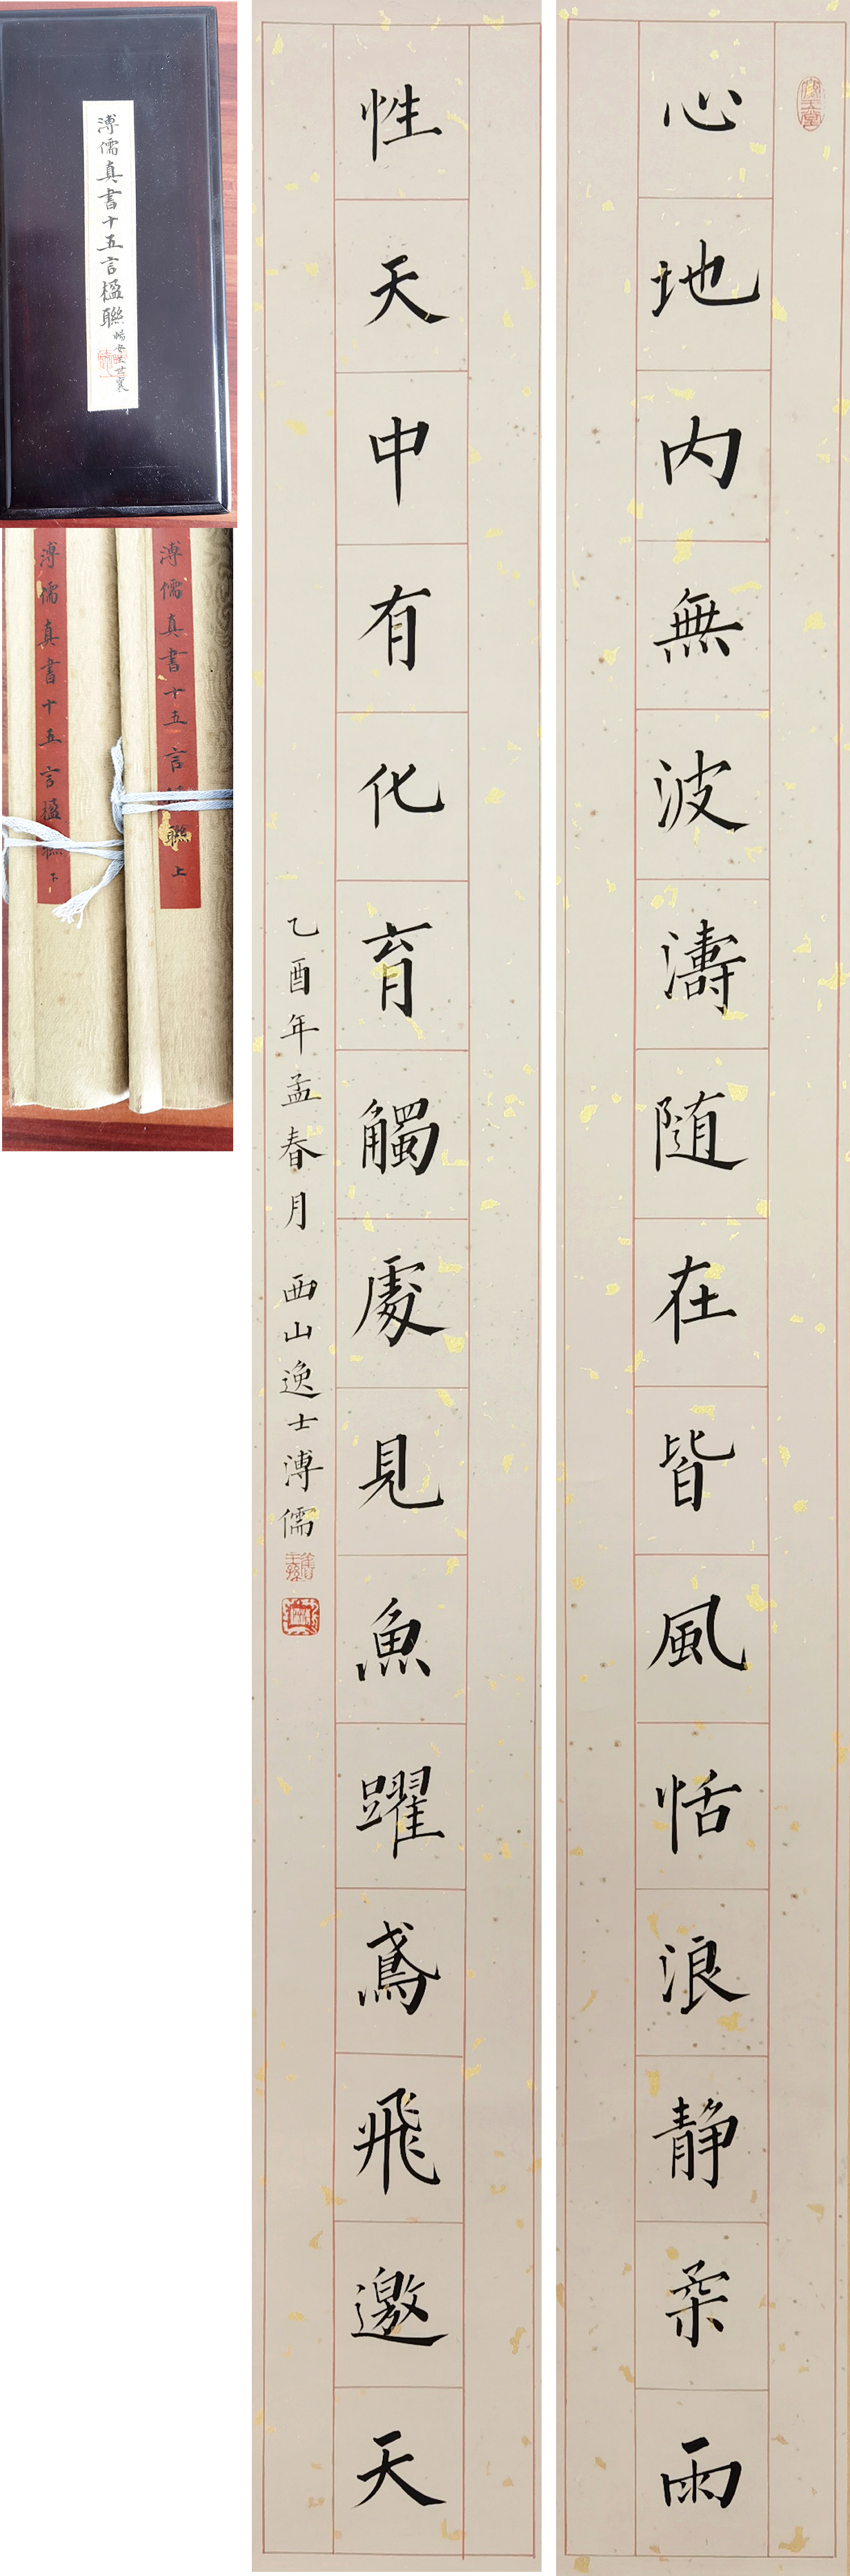 心地内無波濤随在皆風恬浪静柔雨
性天中有化育觸處見魚躍鳶飛邀天
乙酉年孟春月 西山逸士溥儒
溥儒真書十五言楹聯
溥儒真書十五言楹聯 上
溥儒真書十五言楹聯 下